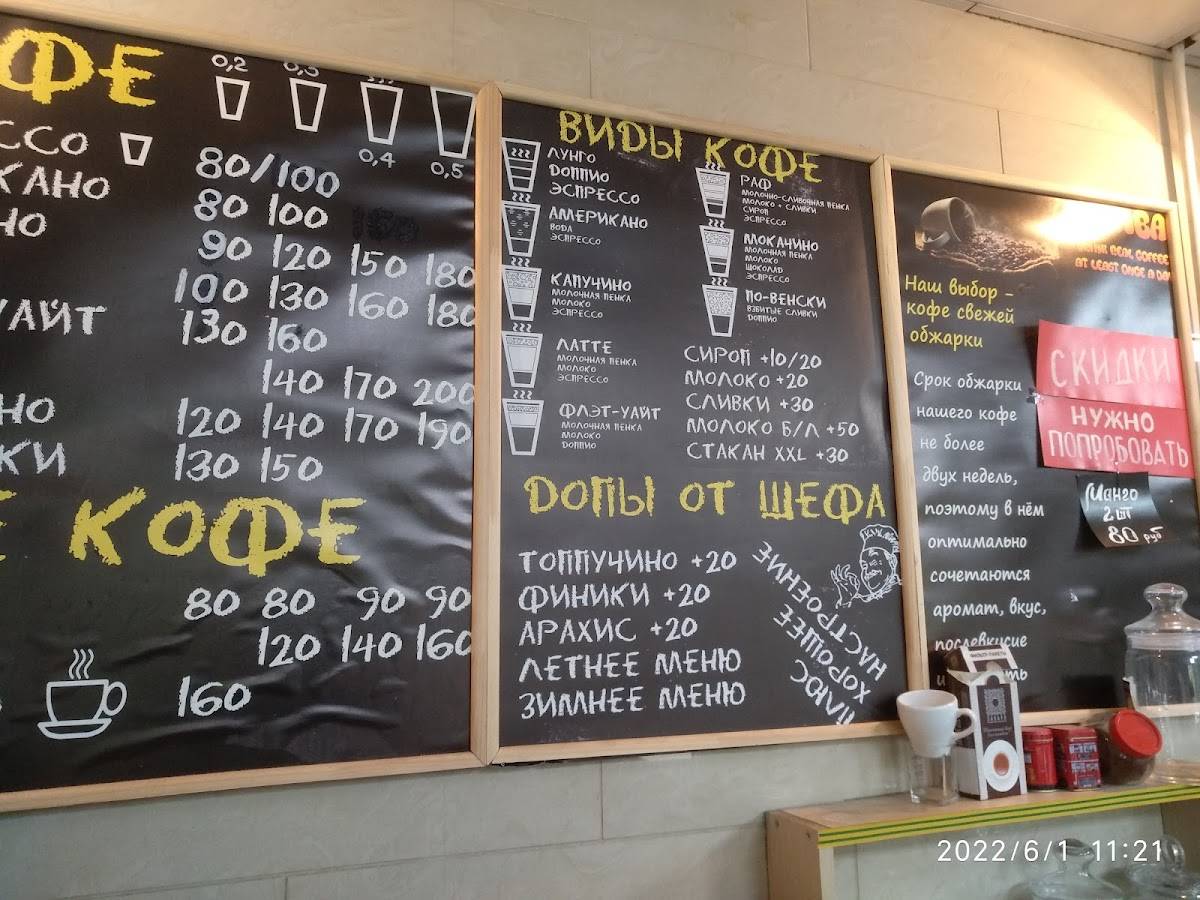 ФЕ
0,2 0,3 0,4 0,5
ССО 80/100
КАНО 80 100
НО 90 120 150 180
100 130 160 180
УАЙТ 130 160
140 170 200
НО 120 140 170 190
КИ 130 150
КОФЕ
80 80 90 90
120 140 160
160
ВИДЫ КОФЕ
ЛУНГО
ДОППИО
ЭСПРЕССО
АМЕРИКАНО
ВОДА
ЭСПРЕССО
КАПУЧИНО
МОЛОЧНАЯ ПЕНКА
МОЛОКО
ЭСПРЕССО
ЛАТТЕ
МОЛОЧНАЯ ПЕНКА
МОЛОКО
ЭСПРЕССО
ФЛЭТ-УАЙТ
МОЛОЧНАЯ ПЕНКА
МОЛОКО
ДОППИО
РАФ
МОЛОЧНО-СЛИВОЧНАЯ ПЕНКА
МОЛОКО + СЛИВКИ
СИРОП
ЭСПРЕССО
МОКАЧИНО
МОЛОЧНАЯ ПЕНКА
МОЛОКО
ШОКОЛАД
ЭСПРЕССО
ПО-ВЕНСКИ
ВЗБИТЫЕ СЛИВКИ
ДОППИО
СИРОП +10/20
МОЛОКО +20
СЛИВКИ +30
МОЛОКО Б/Л +50
СТАКАН XXL +30
ДОПЫ ОТ ШЕФА
ТОППУЧИНО +20
ФИНИКИ +20
АРАХИС +20
ЛЕТНЕЕ МЕНЮ
ЗИМНЕЕ МЕНЮ
ПЛЮС
ХОРОШЕЕ
НАСТРОЕНИЕ
REAL COFFEE
AT LEAST ONCE A DA
Наш выбор –
кофе свежей
обжарки
Срок обжарки
нашего кофе
не более
двух недель,
поэтому в нём
оптимально
сочетаются
аромат, вкус,
послевкусие
и
СКИДКИ
НУЖНО
ПОПРОБОВАТЬ
Манго
2 шт
80 руб
ФИЛЬТР-ПАКЕТЫ
2022/6/1 11:21